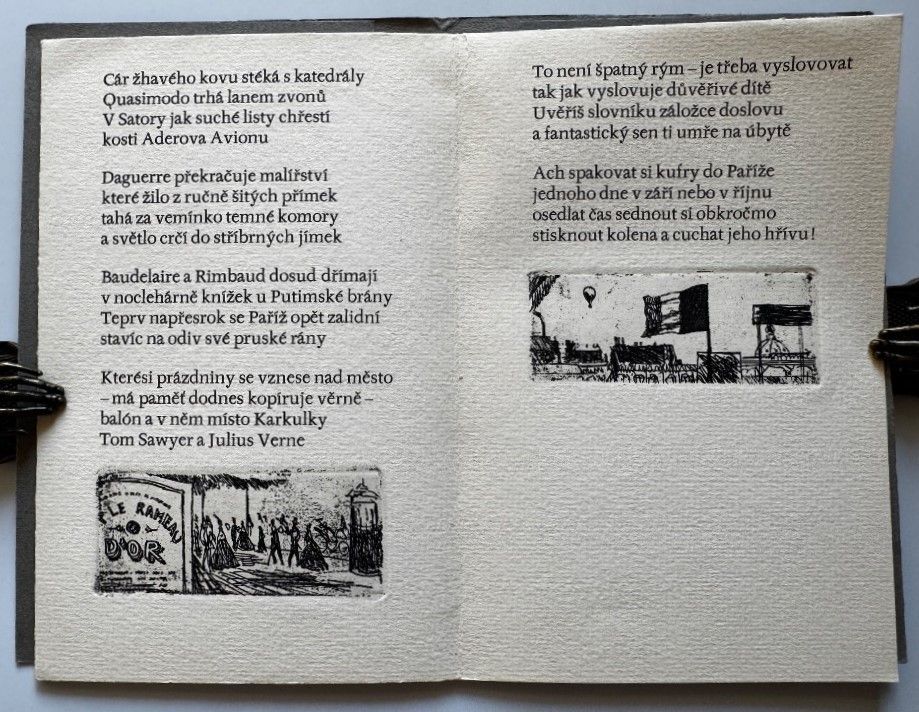 Cár žhavého kovu stéká s katedrály
Quasimodo trhá lanem zvonů
V Satory jak suché listy chřestí
kosti Aderova Avionu
Daguerre překračuje malířství
které žilo z ručně šitých přímek
tahá za vemínko temné komory
a světlo crčí do stříbrných jímek
Baudelaire a Rimbaud dosud dřímají
v noclehárně knížek u Putimské brány
Teprv napřesrok se Paříž opět zalidní
stavíc na odiv své pruské rány
Kterési prázdniny se vznese nad město
– má paměť dodnes kopíruje věrně –
balón a v něm místo Karkulky
Tom Sawyer a Julius Verne
LE RAMEAU
D'OR
To není špatný rým – je třeba vyslovovat
tak jak vyslovuje důvěřivé dítě
Uvěříš slovníku záložce doslovu
a fantastický sen ti umře na úbytě
Ach spakovat si kufry do Paříže
jednoho dne v září nebo v říjnu
osedlat čas sednout si obkročmo
stisknout kolena a cuchat jeho hřívu!